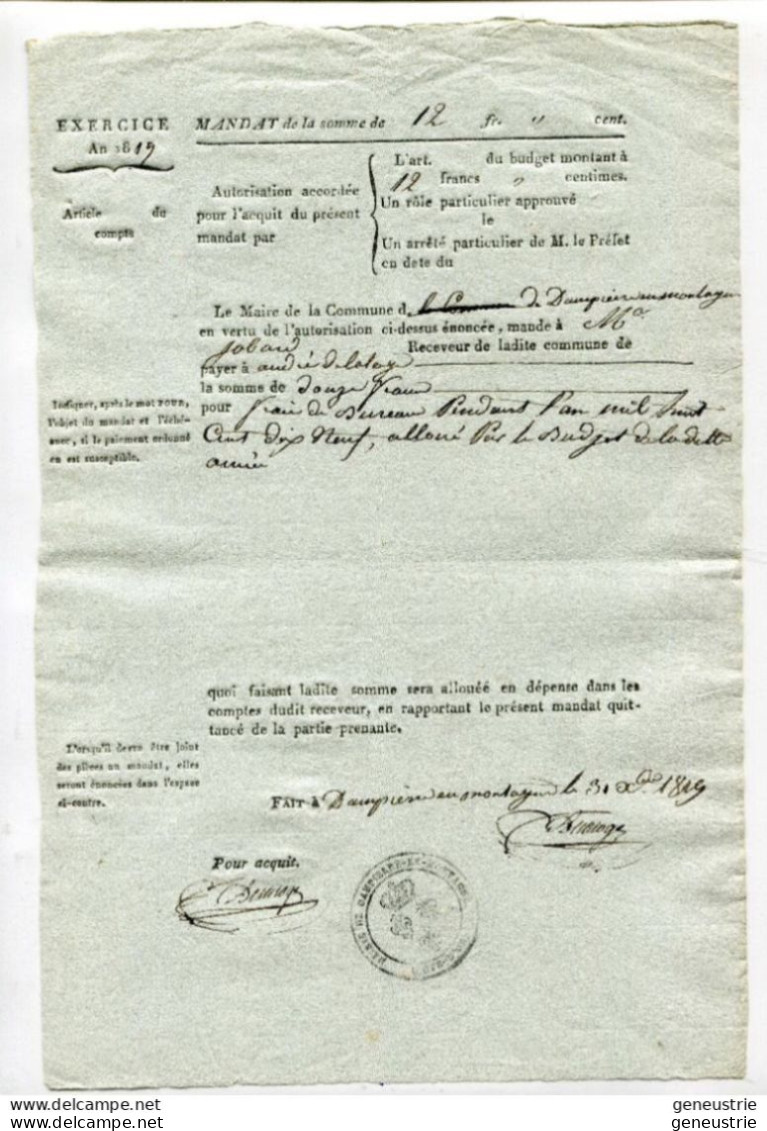 EXERCICE
An 1819
MANDAT de la somme de 12 fr. " cent.
Article du
compte
Autorisation accordée
pour l'acquit du présent
mandat par
L'art. du budget montant à
12 francs " centimes.
Un rôle particulier approuvé
le
Un arrêté particulier de M. le Préfet
en date du
Le Maire de la Commune d de Dampierre en montagne
en vertu de l'autorisation ci-dessus énoncée, mande à Mr
Jobard Receveur de ladite commune de
payer à andré
la somme de douze francs
pour frais de Bureau Pendant l'an mil huit
Cent dix Neuf, alloué Par le Budget de la dette
année
Indiquer, après le mot POUR,
l'objet du mandat et l'éché-
ance, si le paiement ordonné
en est susceptible.
quoi faisant ladite somme sera allouée en dépense dans les
comptes dudit receveur, en rapportant le présent mandat quit-
tancé de la partie prenante.
Lorsqu'il devra être joint
des pièces au mandat, elles
seront énoncées dans l'espace
ci-contre.
FAIT à Dampierre en montagne le 31 Xbre 1819
Pour acquit.
MAIRIE DE DAMPIERRE-EN-MONTAGNE
geneustrie
geneustrie